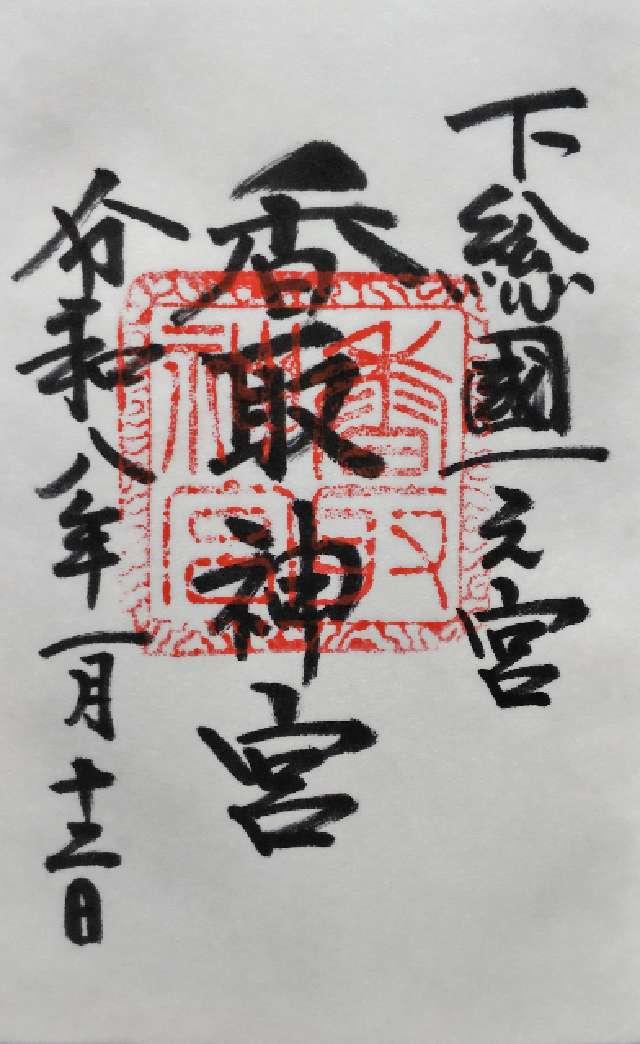 下総國一之宮
香取神宮
令和八年一月十二日
香取神宮